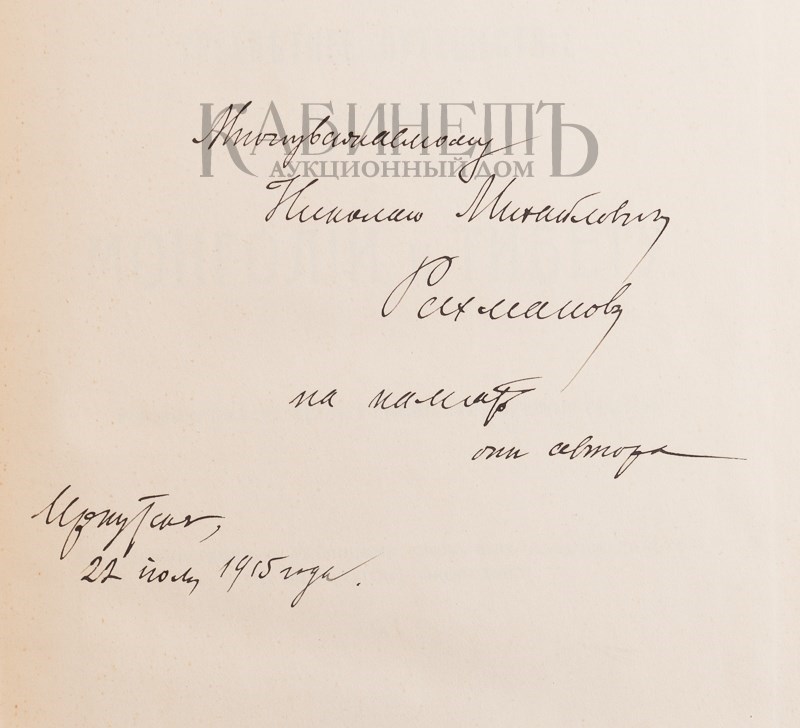 КАБИНЕТЪ
АУКЦИОННЫЙ ДОМ
Многоуважаемому
Николаю Михайловичу
Рахманову
на память
отъ автора
Иркутскъ,
22 июля 1915 года.